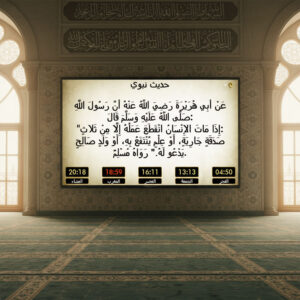 حديث نبوي
عَن أبي هُرَيْرَةَ رَضِيَ اللَّهُ عَنْهُ أنَّ رَسُولَ اللَّهِ
صَلَّى اللَّهُ عَلَيْهِ وَسَلَّمَ قَالَ:
"إذَا مَاتَ الإنْسَانُ انْقَطَعَ عَمَلُهُ إلَّا مِنْ ثَلَاثٍ:
صَدَقَةٍ جَارِيَةٍ، أوْ عِلْمٍ يُنْتَفَعُ بِهِ، أوْ وَلَدٍ صَالِحٍ
يَدْعُو لَهُ." رَوَاهُ مُسْلِمٌ.
04:50 13:13 16:11 18:59 20:18
الفجر الجمعة العصر المغرب العشاء